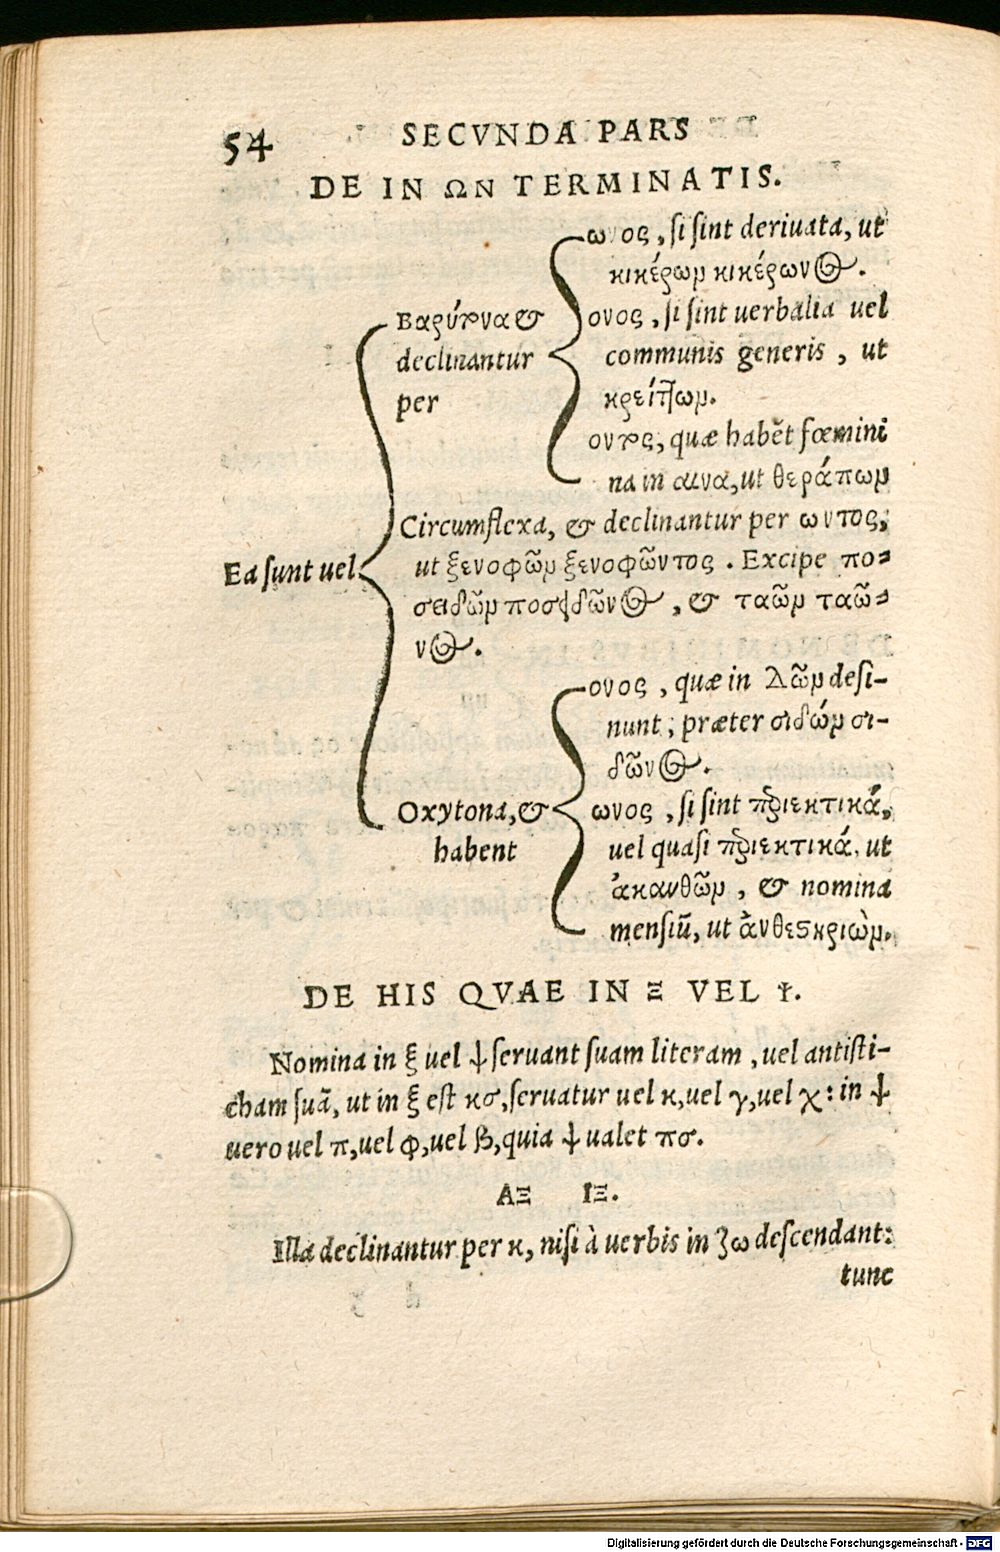 54 SECVNDA PARS
DE IN ΩΝ TERMINATIS.
Ea sunt uel
Βαρύτονα &
declinantur
per
ωνος, si sint deriuata, ut
κικέρων κικέρωνος.
ονος, si sint uerbalia uel
communis generis, ut
κρείττων.
οντος, quæ habẽt fœmini
na in αινα, ut θεράπων
Circumflexa, & declinantur per ωντος,
ut ξενοφῶν ξενοφῶντος. Excipe πο-
σειδῶν ποσειδῶνος, & ταῶν ταῶ-
νος.
Oxytona, &
habent
ονος, quæ in δῶν desi-
nunt; præter σιδών σι-
δῶνος.
ωνος, si sint περιεκτικά,
uel quasi περιεκτικά, ut
ἀκανθῶν, & nomina
mensiũ, ut ἀνθεστηριὼν.
DE HIS QVAE IN Ξ VEL Ψ.
Nomina in ξ uel ψ seruant suam literam, uel antisti-
cham suã, ut in ξ est κσ, seruatur uel κ, uel γ, uel χ: in ψ
uero uel π, uel φ, uel β, quia ψ ualet πσ.
ΑΞ ΙΞ.
Illa declinantur per κ, nisi à uerbis in ζω descendant:
tunc
Digitalisierung gefördert durch die Deutsche Forschungsgemeinschaft - DFG